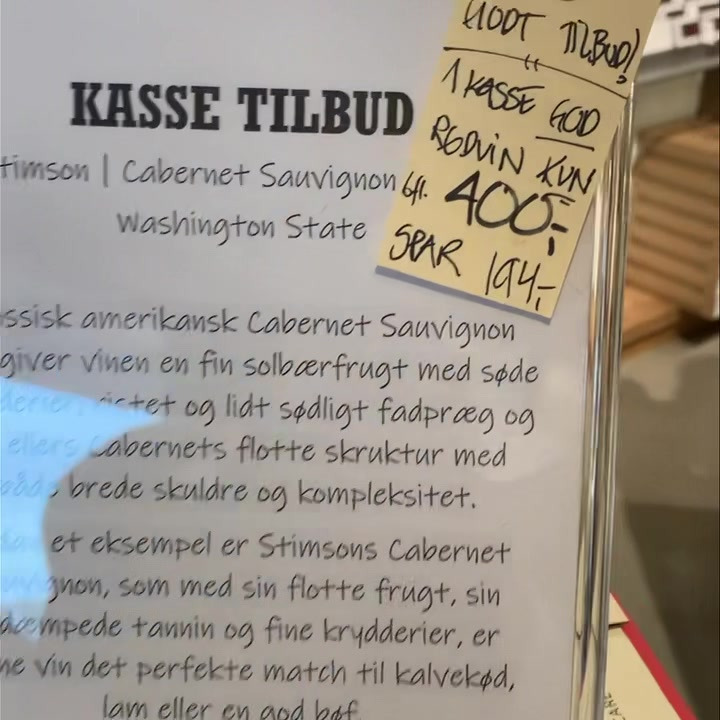 GODT TILBUD!
1 KASSE GOD
RØDVIN KUN
6fl. 400,-
SPAR 194,-
KASSE TILBUD
timson | Cabernet Sauvignon
Washington State
ssisk amerikansk Cabernet Sauvignon
giver vinen en fin solbærfrugt med søde
ristet og lidt sødligt fadpræg og
ellers Cabernets flotte skruktur med
brede skuldre og kompleksitet.
et eksempel er Stimsons Cabernet
gnon, som med sin flotte frugt, sin
dæmpede tannin og fine krydderier, er
ne vin det perfekte match til kalvekød,
lam eller en god bøf.